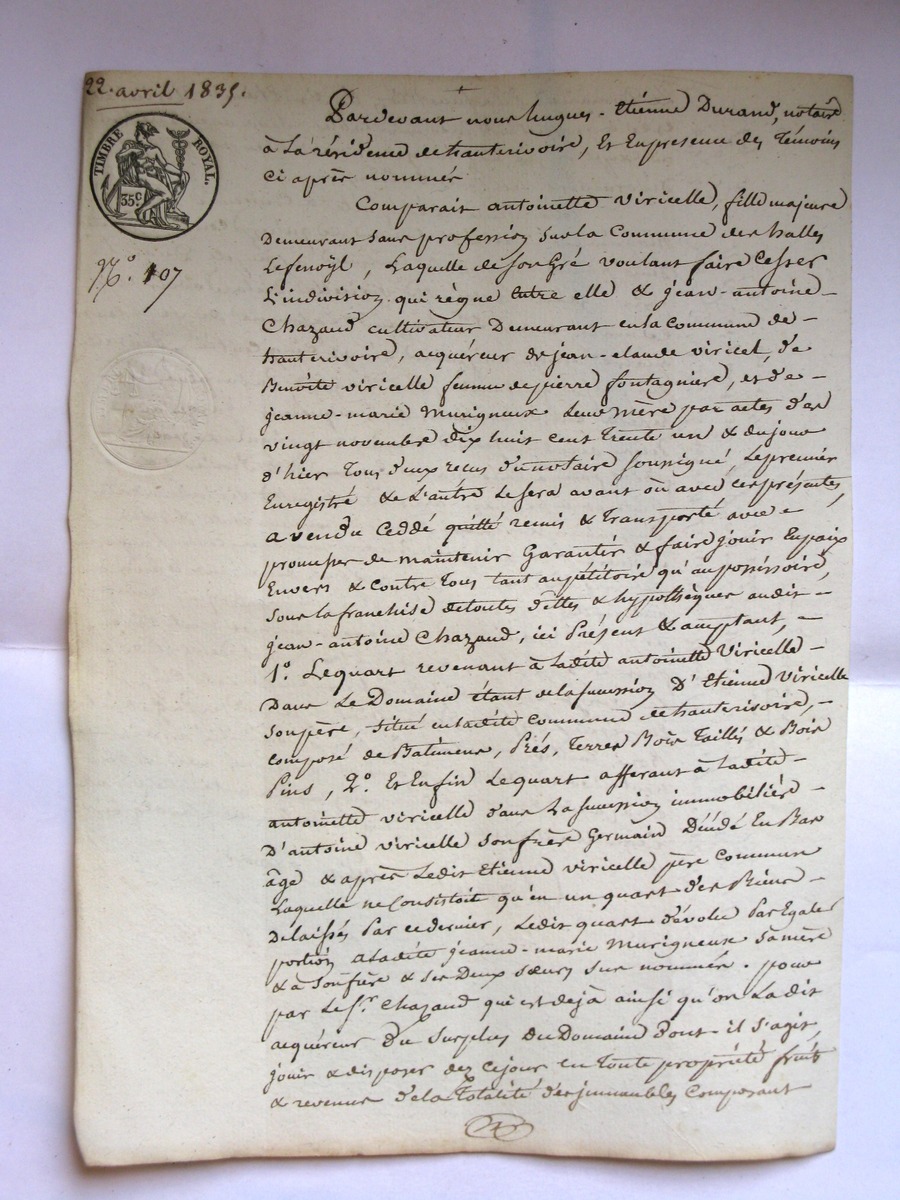 22. avril 1835.
TIMBRE ROYAL.
35c
N.º 107
Pardevant nous hugues-Etiénne Durand, notaire
à La résidence de hauterivoire, Et En presence des Témoins
ci après nommés
Comparait antoinette viricelle, fille majeure
Demeurant sans profession sur la Commune des halles
Lefenoÿl, Laquelle de son Gré voulant faire Cesser
L'indivision qui règne Entre elle & jean-antoine
Chazaud cultivateur Demeurant en la commune de
hauterivoire, acquéreur de jean-claude viricel, de
Benoite viricelle femme de pierre fontagnière, et de
jeanne-marie Murigneux Leur mère par actes des
vingt novembre dix huit cent Trente un & du jour
d'hier Tous deux recus du notaire soussigné, Le premier
Enregistré & L'autre Le sera avant où avec ces présentes,
a vendu Ceddé quitté remis & Transporté avec
promesse de maintenir Garantir & faire jouir En paix
Envers & contre Tous tant au pétitoire qu'au possessoire,
sous la franchise de toutes dettes & hypothèques audit
jean-antoine Chazaud, ici Présent & acceptant,
1º. Le quart revenant à Ladite antoinette Viricelle
Dans Le Domaine étant de la succession D'Etienne Viricelle
son père, situé en ladite commune de hauterivoire,
composé de Batimens, Prés, Terres Bois Taillis & Bois
Pins, 2º. Et Enfin Le quart afferant à Ladite
antoinette viricelle dans La succession immobilière
D'antoine viricelle son frère Germain Décédé En Bas
âge & après Ledit Etienne viricelle père Commun
Laquelle ne Consistoit qu'en un quart des Biens
Délaissés Par ce dernier, Ledit quart dévolu Par Egale
portion a Ladite jeanne-marie Murigneux sa mère
& à son frère & ses Deux sœurs sus nommés. pour
par Le Sr. Chazaud qui est déjà ainsi qu'on La dit
acquéreur Du Surplus Du Domaine Dont il s'agit,
jouir & disposer dez Cejour en Toute propriété fruits
& revenus de la Totalité des immeubles Composant